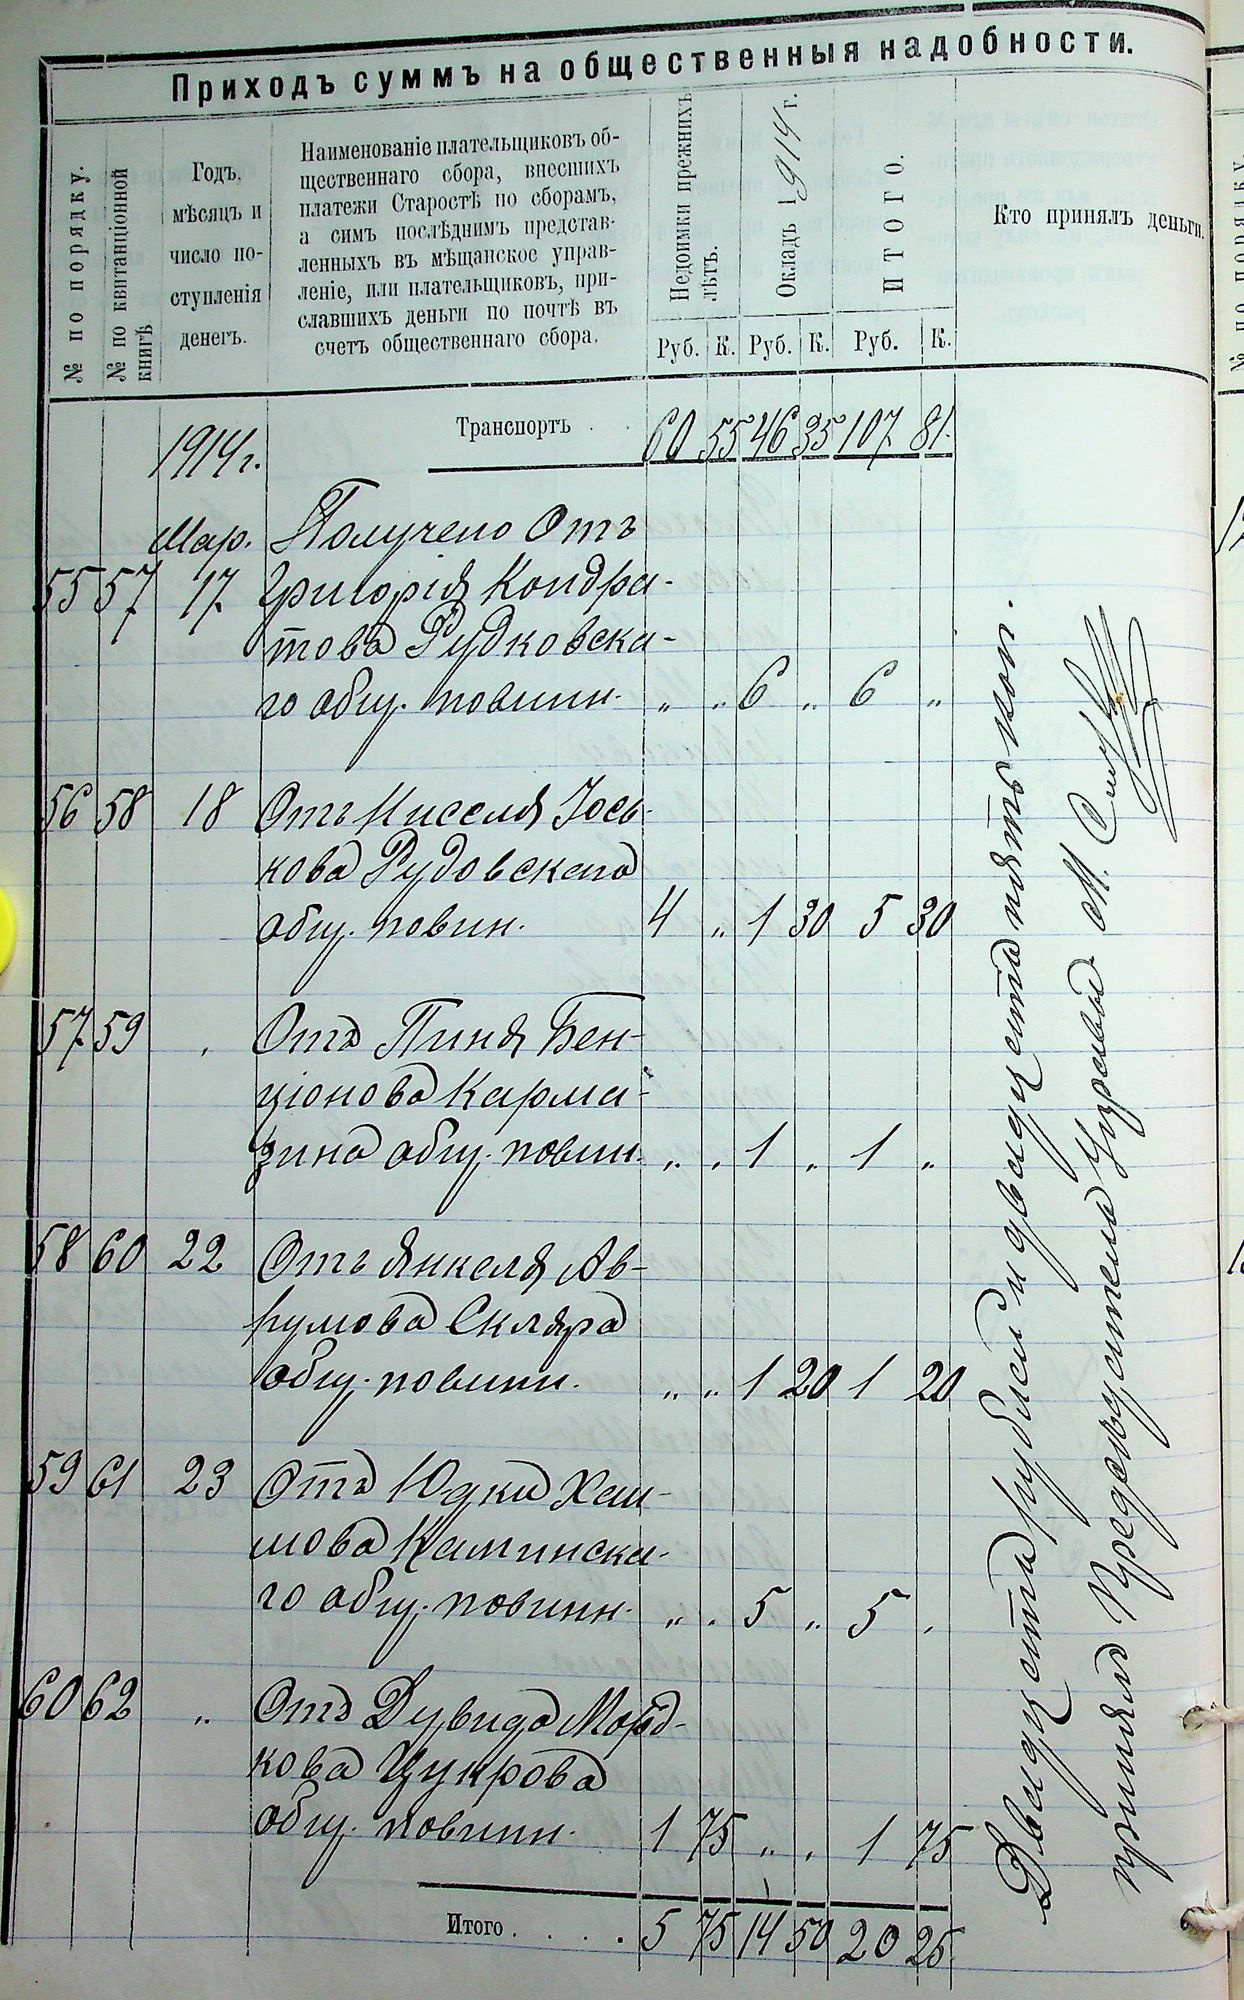 Приходъ суммъ на общественныя надобности.
№ по порядку.
№ по квитанціонной книгѣ
Годъ, мѣсяцъ и число поступленія денегъ.
Наименованіе плательщиковъ об-
щественнаго сбора, внесшихъ
платежи Старостѣ по сборамъ,
а симъ послѣднимъ представ-
ленныхъ въ мѣщанское управ-
леніе, или плательщиковъ, при-
славшихъ деньги по почтѣ въ
счетъ общественнаго сбора.
Недоимки прежнихъ лѣтъ.
Окладъ 1914 г.
ИТОГО.
Кто принялъ деньги.
Руб. К. Руб. К. Руб. К.
1914 г. Транспортъ . . 60 55 46 35 107 81.
Мар. Получено Отъ
55 57 17 Григорія Кондра-
това Рудковска-
го общ. повинн. „ „ 6 „ 6 „
56 58 18 Отъ Киселя Іось-
кова Рудовскаго
общ. повин. 4 „ 1 30 5 30
57 59 „ Отъ Пиня Бен-
ціонова Карма-
зина общ. повин. „ „ 1 „ 1 „
58 60 22 Отъ Янкеля Ав-
румова Скляра
общ. повинн. „ „ 1 20 1 20
59 61 23 Отъ Юдки Хаи-
мова Каминска-
го общ. повинн. „ „ 5 „ 5 „
60 62 „ Отъ Дувида Морд-
кова Цукрова
общ. повинн. 1 75 „ „ 1 75
Итого . . . . 5 75 14 50 20 25
Двадцать рублей и двадцать пять коп.
принялъ Предсѣдатель Управы М.